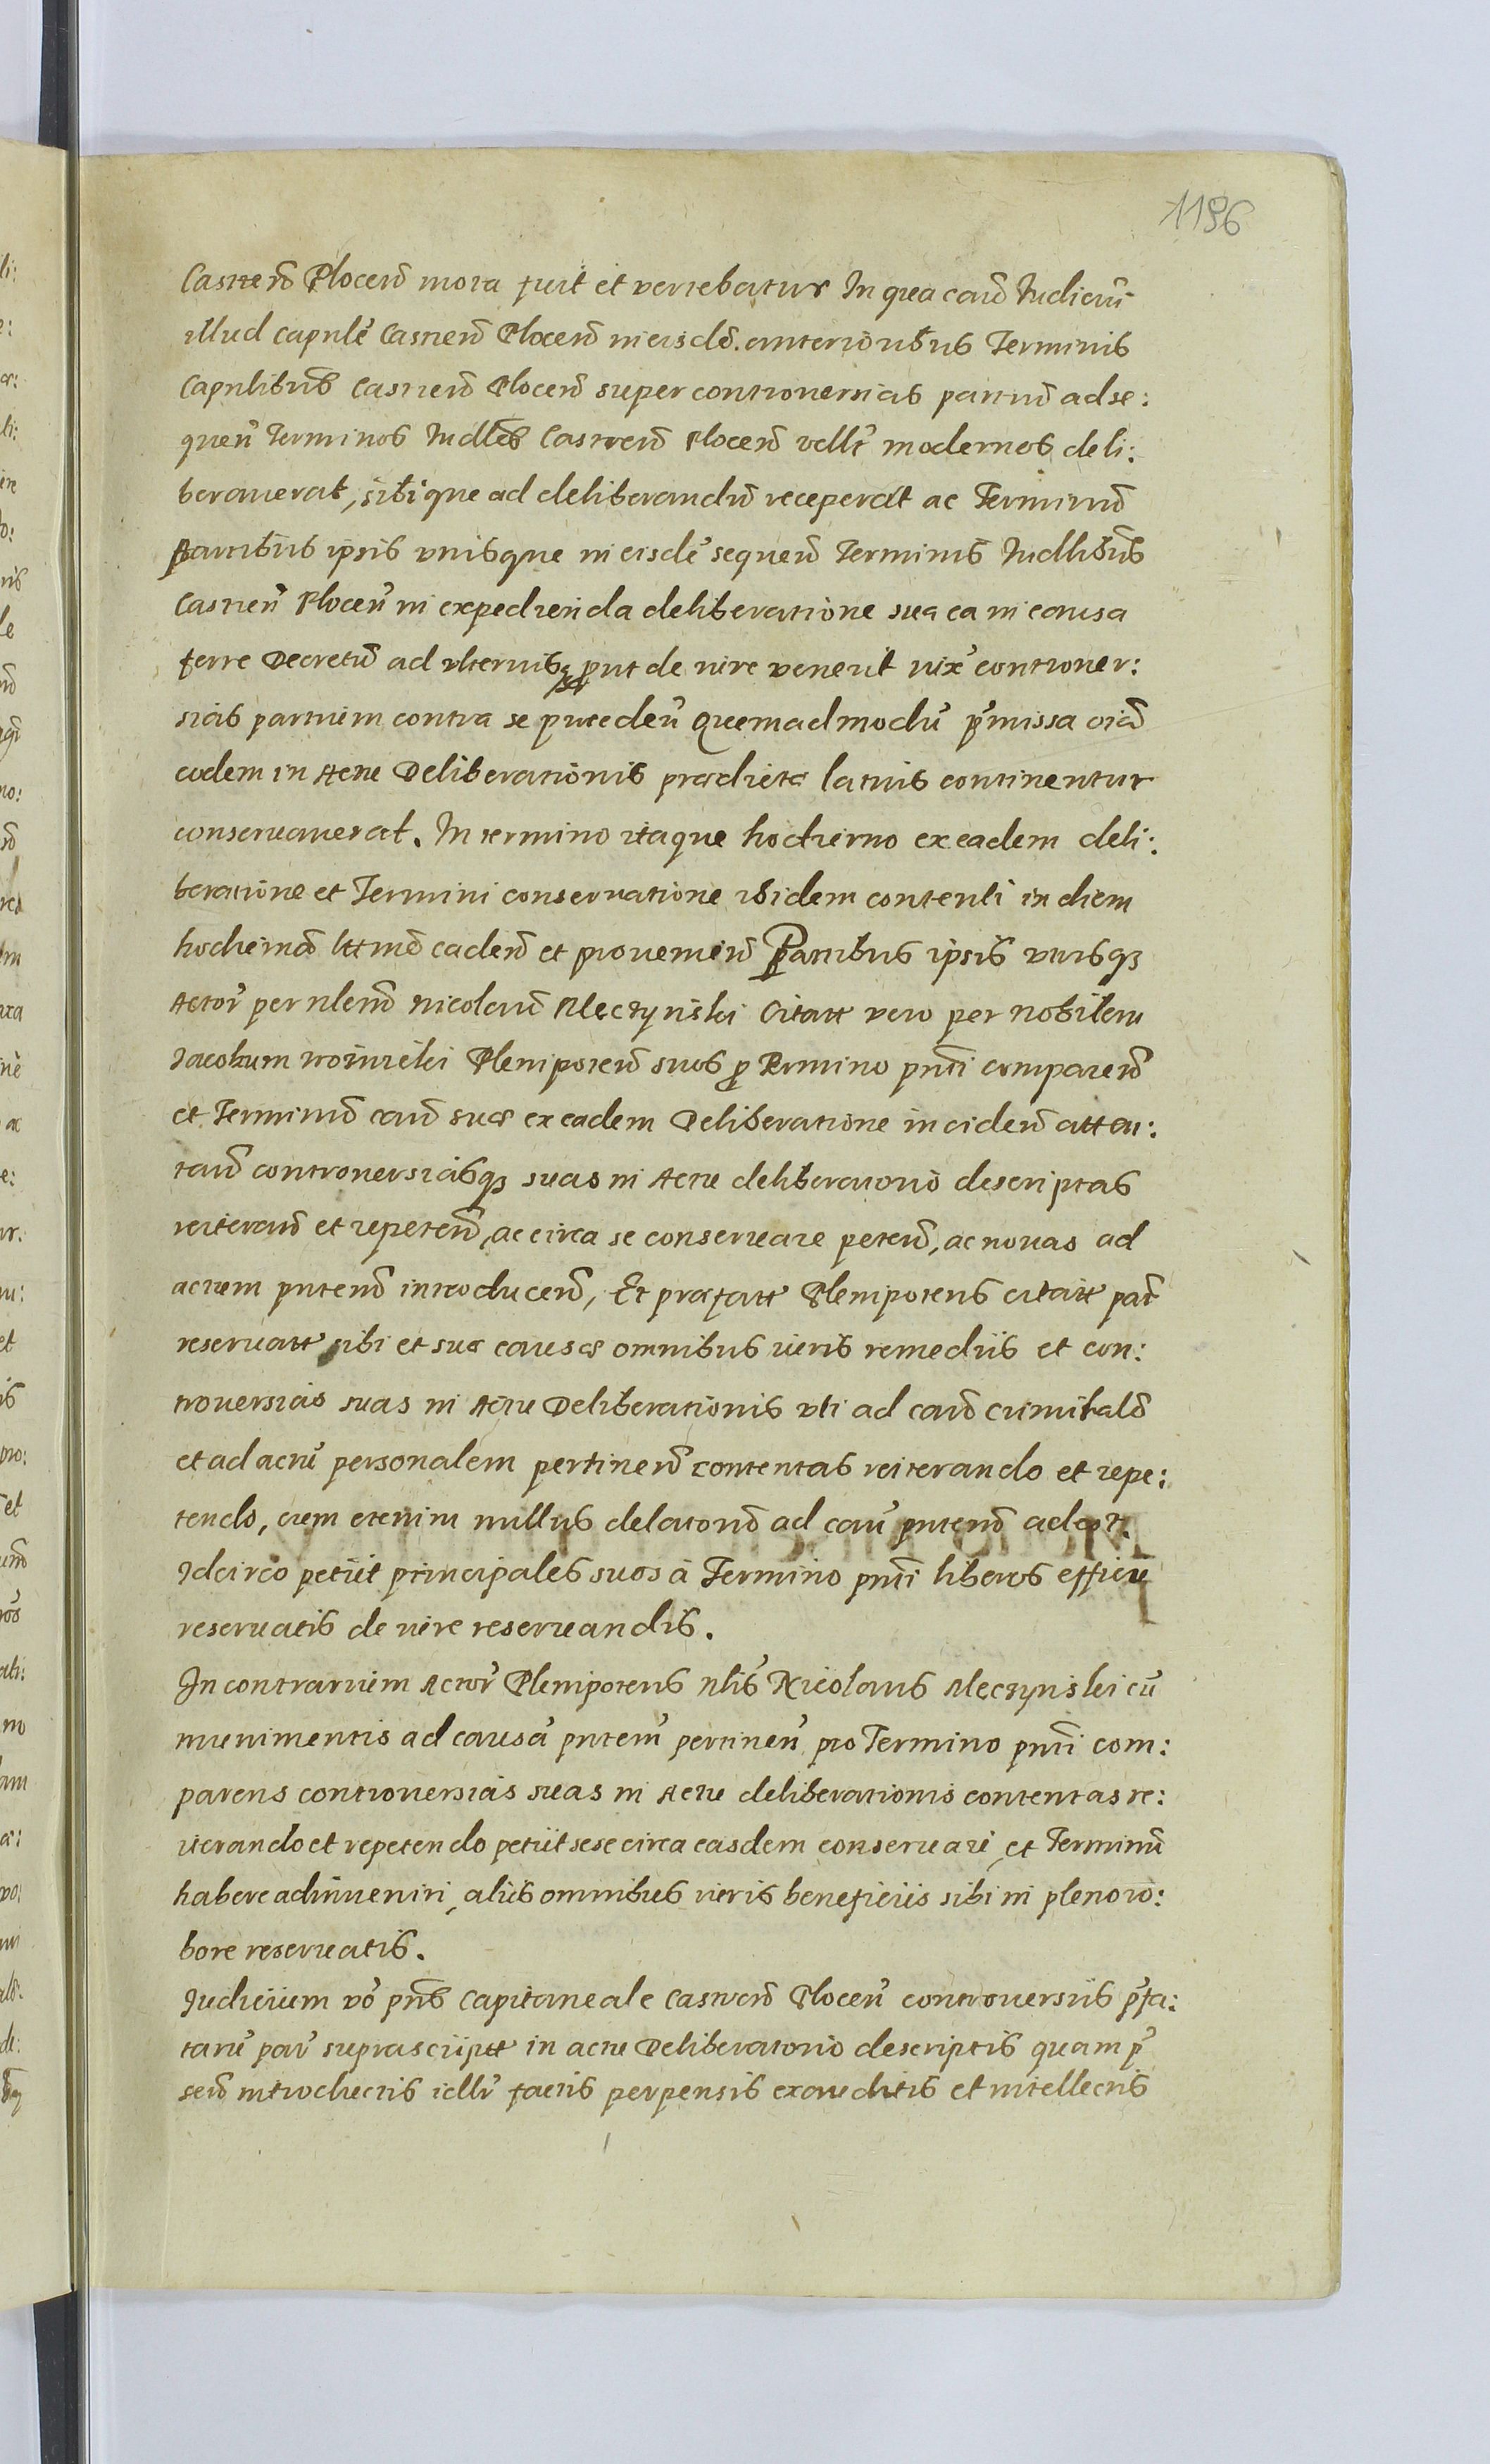 1196
Castren Plocen mota fuit et vertebatur In qua caum Iudicium
illud capnle Castren Plocen in eisde. anterioribus Terminis
Capnlibus Castren Plocen super controuersias partium ad se:
quen Terminos Iudles Castren Plocen velli modernos deli:
berauerat, sibique ad deliberandum receperat ac Terminum
Partibus ipsis vnisque in eisde sequen Terminis Iudlibus
Castren Plocen in expedienda deliberatione sua ea in causa
ferre Decretum ad vlterius prout de iure venerit iux controuer:
sias partium contra se preceden quemadmodu pmissa oia
eodem in Actu Deliberationis praedictae latius continentur
conseruauerat. In termino itaque hodierno ex eadem deli:
beratione et Termini conseruatione ibidem contenti in diem
hodiernam caden et prouenien Partibus ipsis vnisq3
Actor per nlem Nicolaum Męczynski Citatt vero per Nobilem
Iacobum Plenipoten suos p Termino pnti comparen
et Terminum caum suae ex eadem Deliberatione inciden atten:
tan controuersiasq3 suas in Actu deliberatorio descriptas
reiteran et repeten, ac circa se conseruare peten, ac nouas ad
actum pntem introducen, Et praefatt Plenipotens citatt part
reseruatt sibi et suae causae omnibus iuris remediis et con:
trouersias suas in Actu Deliberationis vti ad caum criminalem
et ad actu personalem pertinen contentas reiterando et repe:
tendo, cum etenim nullus delatorum ad cau pntem
Idcirco petiit principales suos à Termino pnti liberos effici
reseruatis de iure reseruandis.
In contrarium Actor Plenipotens Nlis Nicolaus Męczynski cu
munimentis ad causa pntem pertinen pro Termino pnti com:
parens controuersias suas in Actu deliberationis contentas re:
iterando et repetendo petiit sese circa easdem conseruari, et Terminu
habere adinueniri, aliis omnibus iuris beneficiis sibi in pleno ro:
bore reseruatis.
Iudicium vo pns Capitaneale Castren Plocen controuersiis pfa:
taru par suprascriptt in actu Deliberatorio descriptis quam p
sen introductis illi factis perpensis exauditis et intellectis